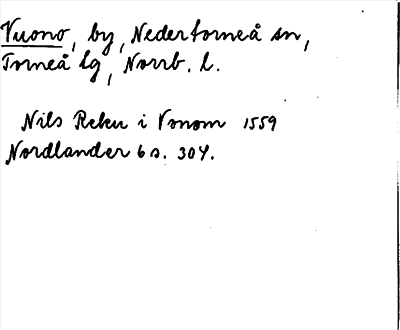 Vuono, by, Nedertorneå sn,
Torneå lg, Norrb. l.
Nils Reku i Vonom 1559
Nordlander 6 s. 304.